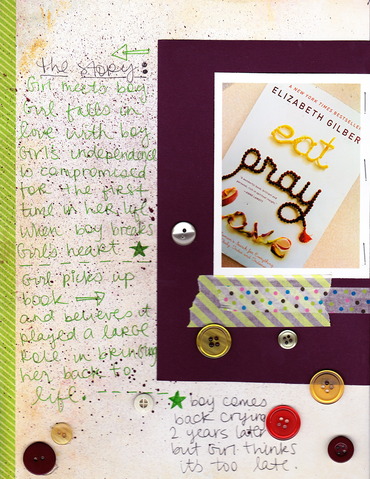 The Story:
Girl meets boy
Girl falls in
love with boy
Girl's independence
is compromised
for the first
time in her life
when boy breaks
Girl's heart ★
Girl picks up
book →
and believes it
played a large
role in bringing
her back to
life.
★ boy comes
back crying
2 years later
but Girl thinks
it's too late.
A NEW YORK TIMES BESTSELLER
ELIZABETH GILBER
eat
pray
love